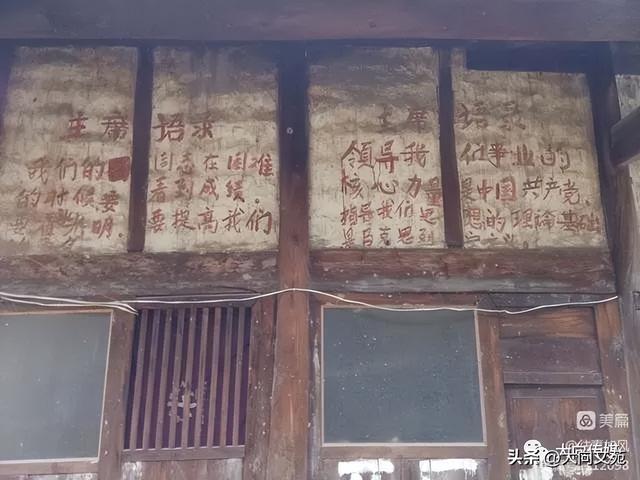 主席语录
我们的同志在困难
的时候要看到成绩
明要提高我们
主席语录
领导我们事业的
核心力量是中国共产党
指导我们思想的理论基础
是马克思列
美篇
头条@大同文苑